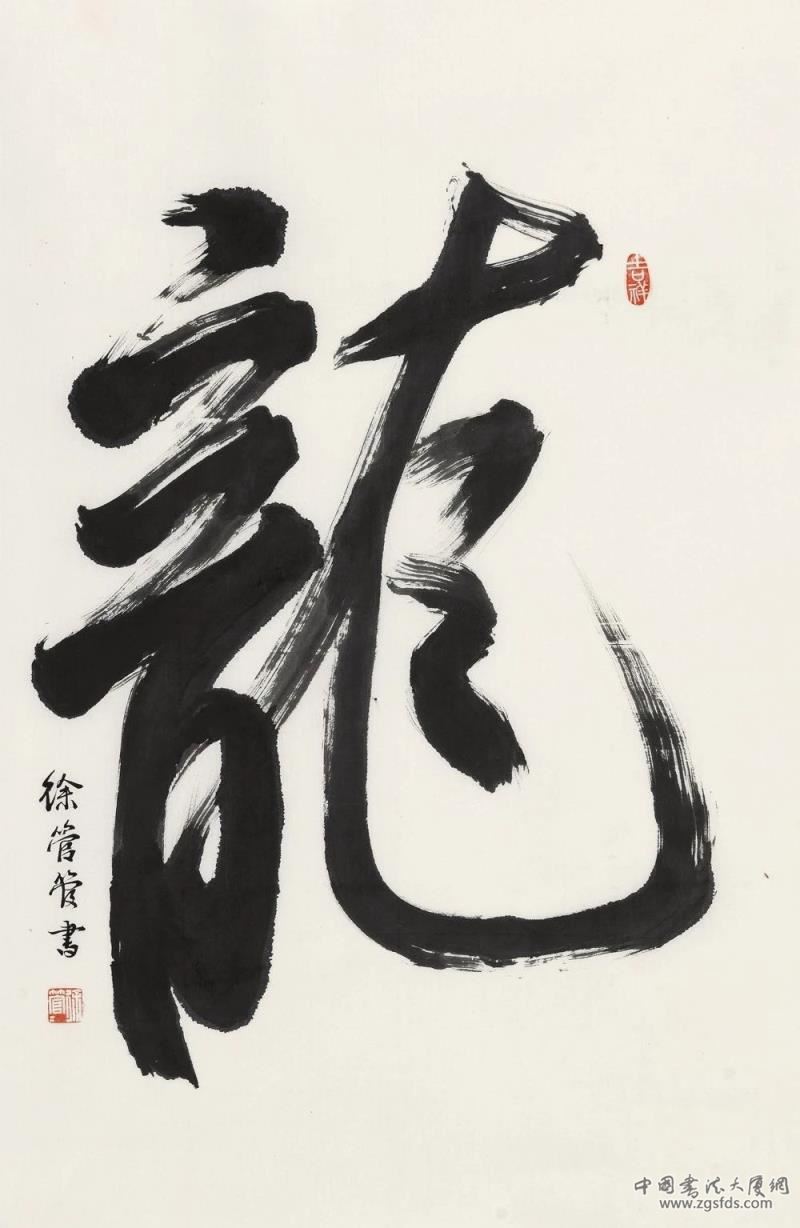 龍
吉祥
徐管管書
中国書法大厦網
www.zgsfds.com